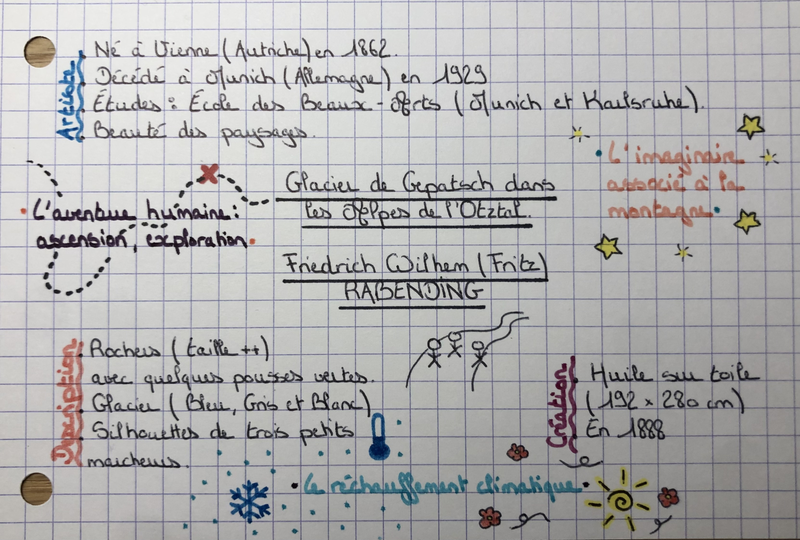 Artiste
Né à Vienne (Autriche) en 1862.
Décédé à Munich (Allemagne) en 1929
Études : École des Beaux-Arts (Munich et Karlsruhe).
Beauté des paysages.
• L'imaginaire
associé à la
montagne •
• L'aventure humaine :
ascension, exploration •
Glacier de Gepatsch dans
les Alpes de l'Otztal.
Friedrich Wilhem (Fritz)
RABENDING
Description
Rochers (taille ++)
avec quelques pousses vertes.
Glacier (Bleu, Gris et Blanc)
Silhouettes de trois petits
marcheurs.
Création
Huile sur toile
(192 × 280 cm)
En 1888
• Le réchauffement climatique •